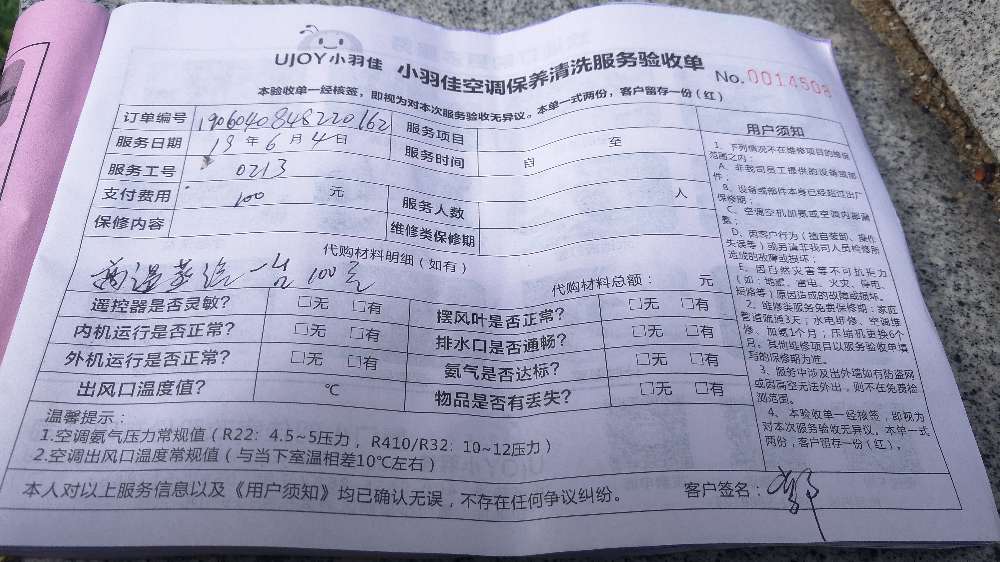 UJOY小羽佳 小羽佳空调保养清洗服务验收单 No.0014508
本验收单一经核签，即视为对本次服务验收无异议。本单一式两份，客户留存一份（红）
订单编号 190604084822016​2 服务项目
服务日期 19年6月4日 服务时间 自 至
服务工号 0213
支付费用 100 元 服务人数 人
保修内容 维修类保修期
代购材料明细（如有） 代购材料总额： 元
高温蒸汽一台100元
遥控器是否灵敏？ 口无 口有 摆风叶是否正常？ 口无 口有
内机运行是否正常？ 口无 口有 排水口是否通畅？ 口无 口有
外机运行是否正常？ 口无 口有 氨气是否达标？ 口无 口有
出风口温度值？ ℃ 物品是否有丢失？ 口无 口有
温馨提示：
1.空调氨气压力常规值（R22：4.5~5压力，R410/R32：10~12压力）
2.空调出风口温度常规值（与当下室温相差10℃左右）
本人对以上服务信息以及《用户须知》均已确认无误，不存在任何争议纠纷。 客户签名：
用户须知
1、下列情况不在维修项目的维保
范围之内：
A、非我司员工提供的设备或部
件；
B、设备或部件本身已经超过出厂
保修期；
C、空调空机加氨或空调内部漏
氨；
D、因客户行为（擅自装卸、操作
失误等）或另请非我司人员检修所
造成的故障或损坏；
E、因自然灾害等不可抗拒力
（如：地震、雷电、火灾、停电、
短路等）原因造成的故障或损坏。
2、维修类服务免费保修期：家庭
管道疏通3天；水电维修、空调维
修、加氨1个月；压缩机更换6个
月。其他维修项目以服务验收单填
写的保修期为准。
3、服务中涉及出外墙如有防盗网
或因高空无法外出，则不在免费检
测范围。
4、本验收单一经核签，即视为
对本次服务验收无异议。本单一式
两份，客户留存一份（红）。